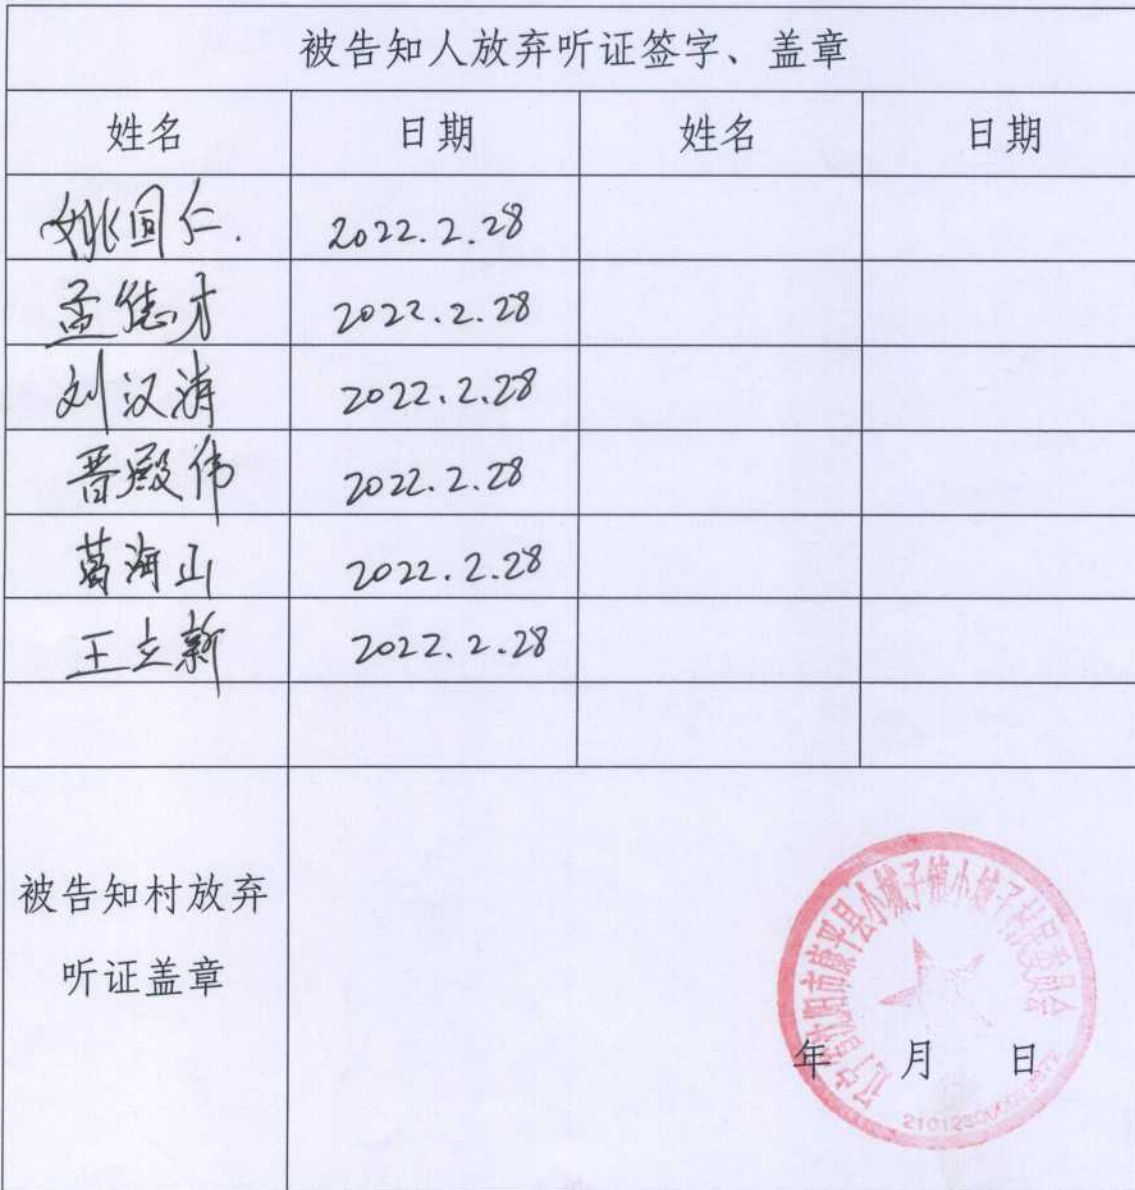 被告知人放弃听证签字、盖章
姓名 日期 姓名 日期
姚国仁. 2022.2.28
孟德才 2022.2.28
刘汉涛 2022.2.28
晋殿伟 2022.2.28
葛海山 2022.2.28
王立新 2022.2.28
被告知村放弃
听证盖章
辽宁省沈阳市康平县小城子镇小城子村民委员会
年 月 日